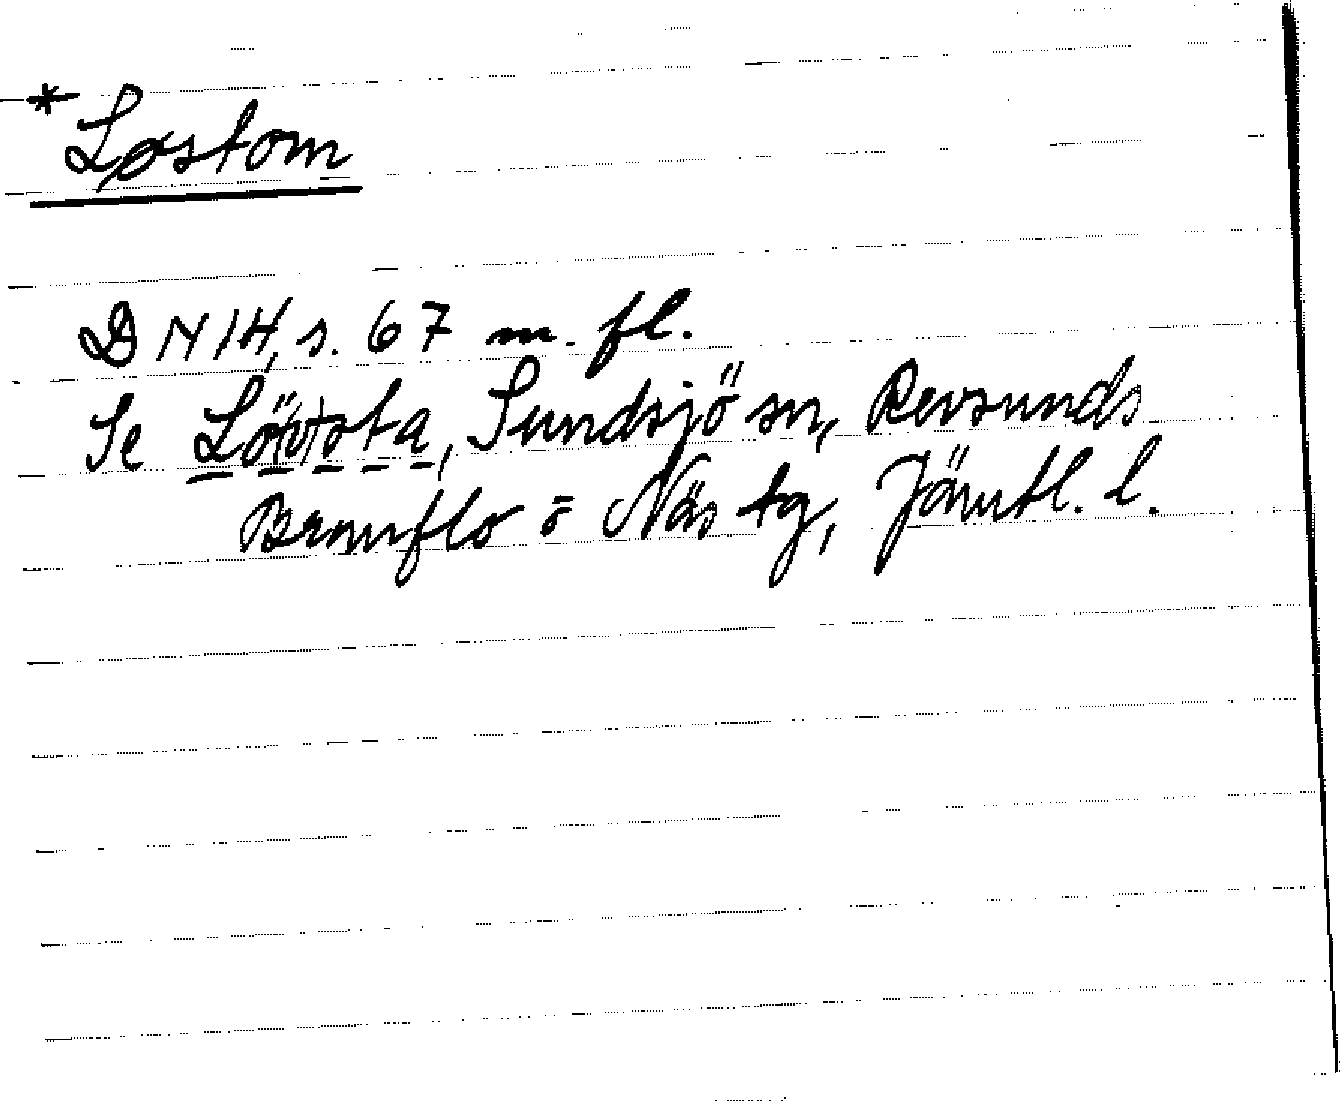 * Løstom
DN 14, s. 67 m. fl.
Se Lövsta, Sundsjö sn, Revsunds
Brunflo o Näs tg, Jämtl. l.